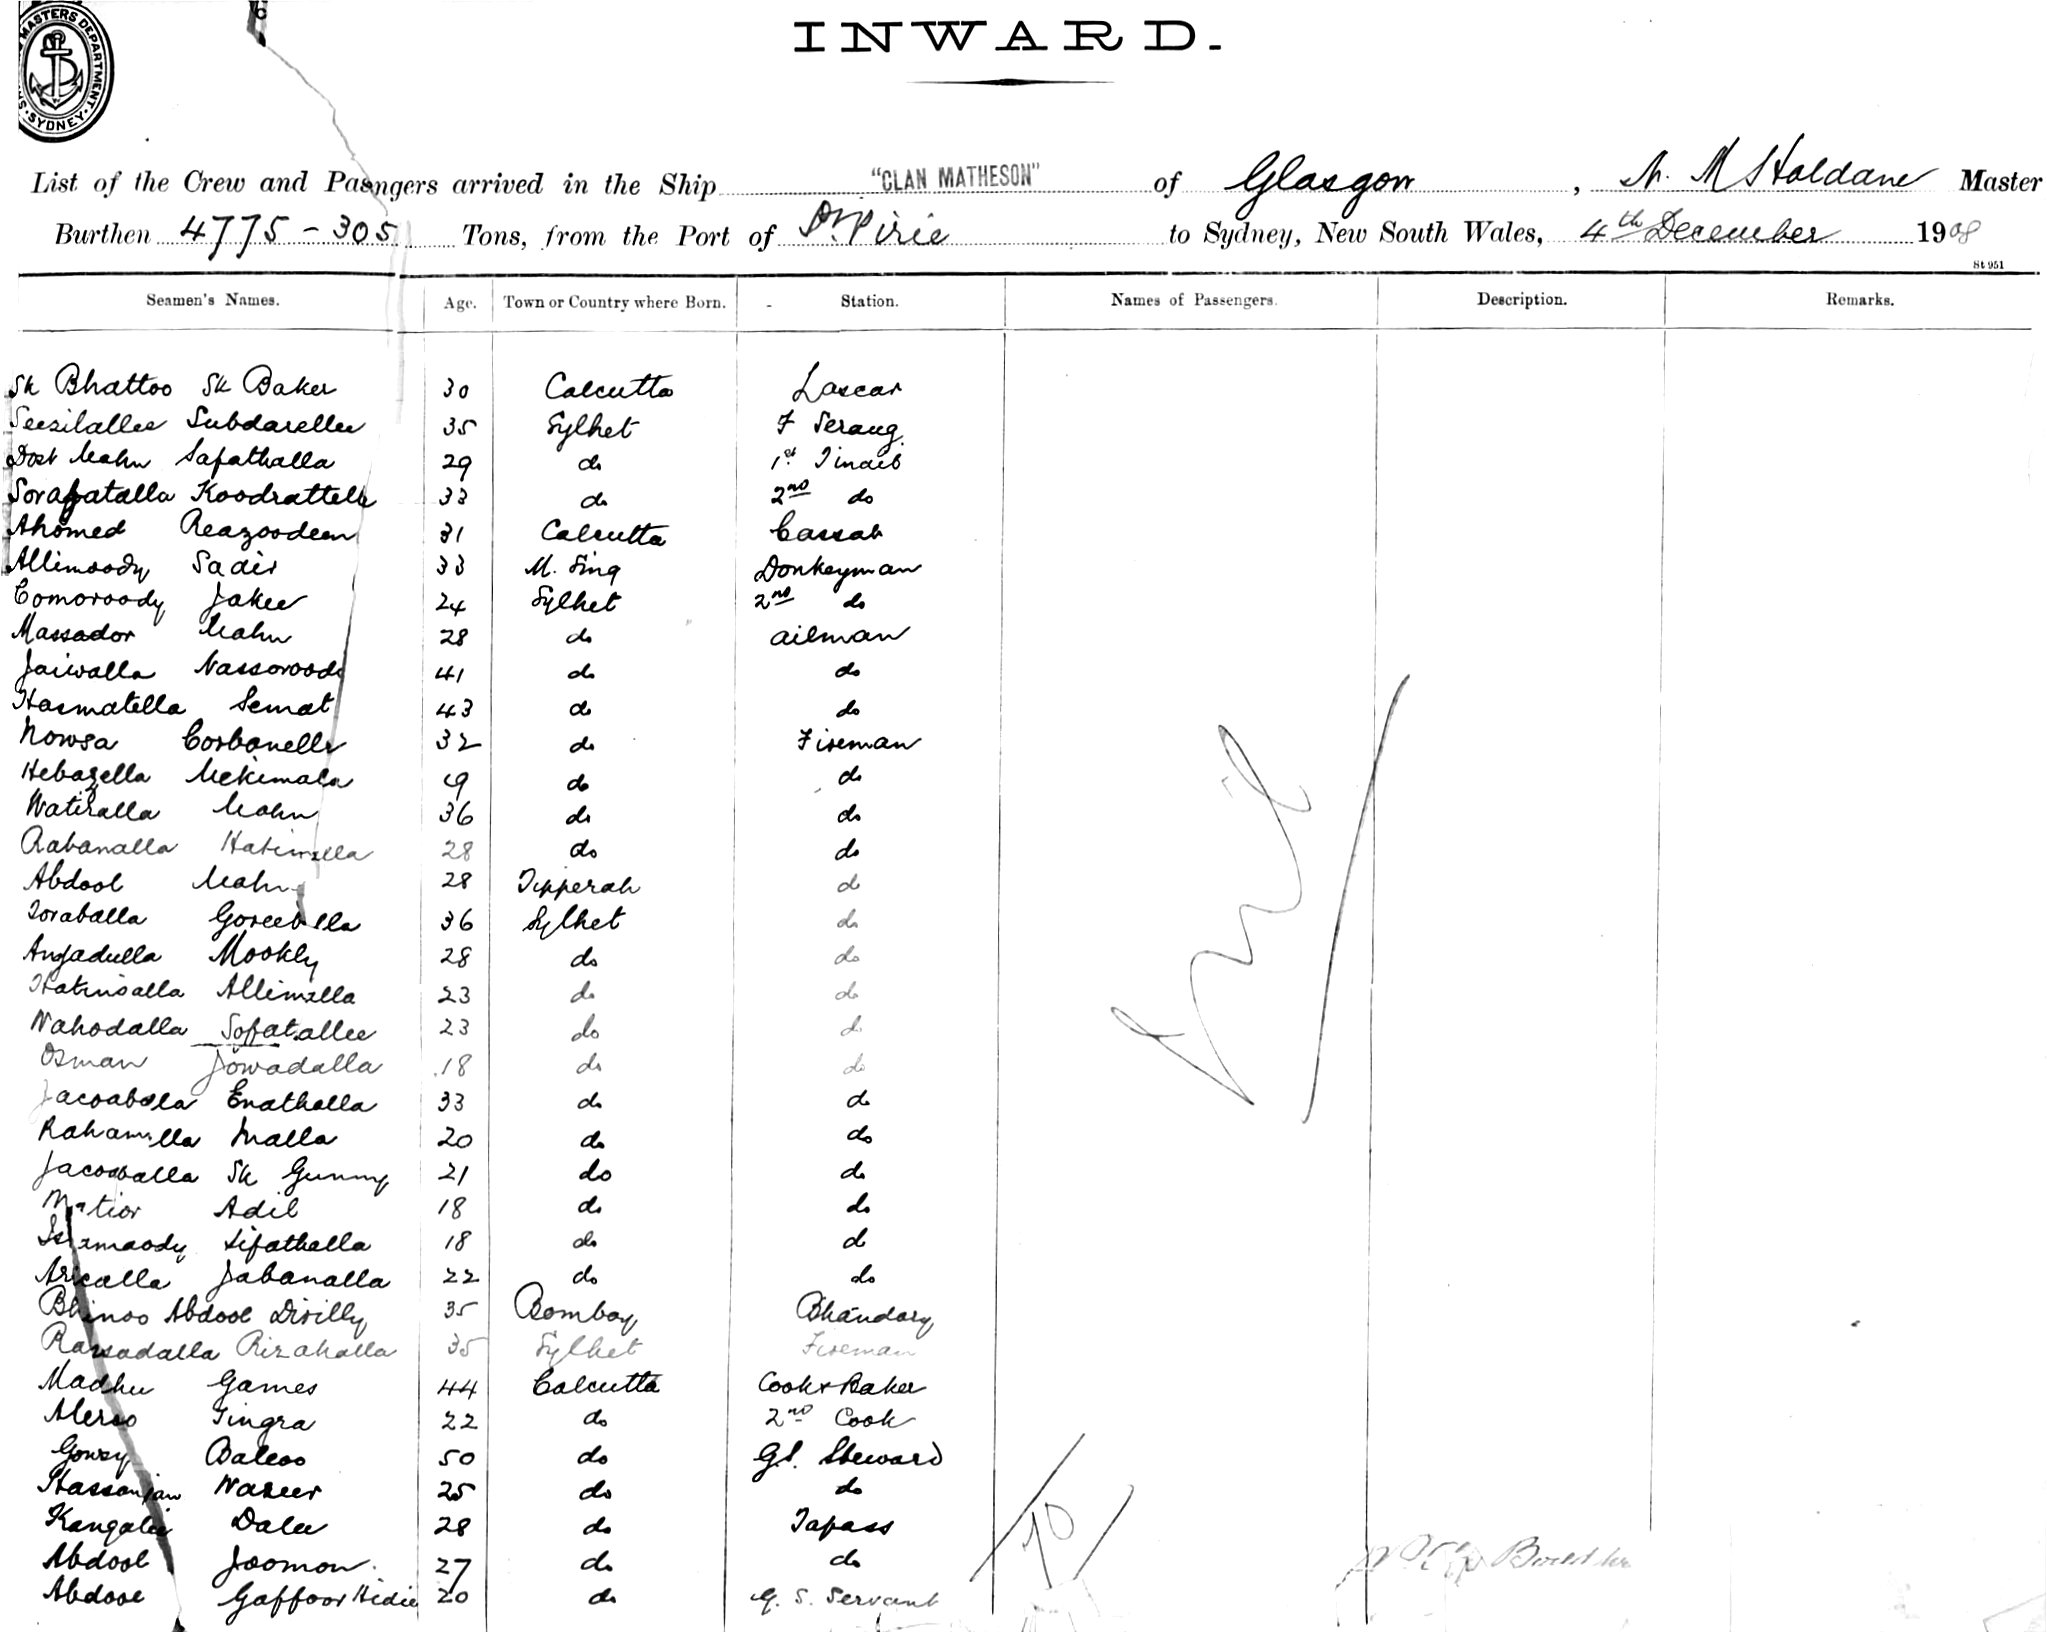 MASTERS DEPARTMENT
SYDNEY.
INWARD.
List of the Crew and Pasngers arrived in the Ship "CLAN MATHESON" of Glasgow, Haldane Master
Burthen 4775 - 305 Tons, from the Port of Pt. Pirie to Sydney, New South Wales, 4th December 1908
St 951
Seamen's Names. Age. Town or Country where Born. Station. Names of Passengers. Description. Remarks.
Sk Bhattoo Sk Baker 30 Calcutta Lascar
Subdarellee 35 Sylhet F Serang
Dost Mahn Safathalla 29 do 1st Tindel
Koodrattella 33 do 2nd do
Ahomed Reazoodeen 31 Calcutta Cassab
Allimoody Sadir 33 M. Sing Donkeyman
Comoroody Jakee 24 Sylhet 2nd do
Massador Mahn 28 do Oilman
Jaiwalla Nassoroodi 41 do do
Hasmatella Semat 43 do do
Nowsa Corbanella 32 do Fireman
Hebazella 19 do do
Watiralla Mahn 36 do do
Rabanalla 28 do do
Abdool Mahn 28 Tipperah do
Toraballa 36 Sylhet do
Mookly 28 do do
Allimella 23 do do
Nahodalla Sofatallee 23 do do
Osman Jowadalla 18 do do
Enathalla 33 do do
Malla 20 do do
Sk Gunny 21 do do
Adil 18 do do
Sifathalla 18 do do
Jabanalla 22 do do
Abdool Dirilly 35 Bombay Bhandary
Rarsadalla Rizahalla 35 Sylhet Fireman
Madhu Games 44 Calcutta Cook & Baker
Aleroo Tingra 22 do 2nd Cook
Gowsy Baleoo 50 do Gl. Steward
Hassanjan Nazeer 25 do do
Kangalie Dalu 28 do Topass
Abdool Joomon. 27 do do
Abdool Gaffoor Hidie 20 do G. S. Servant
nil
70